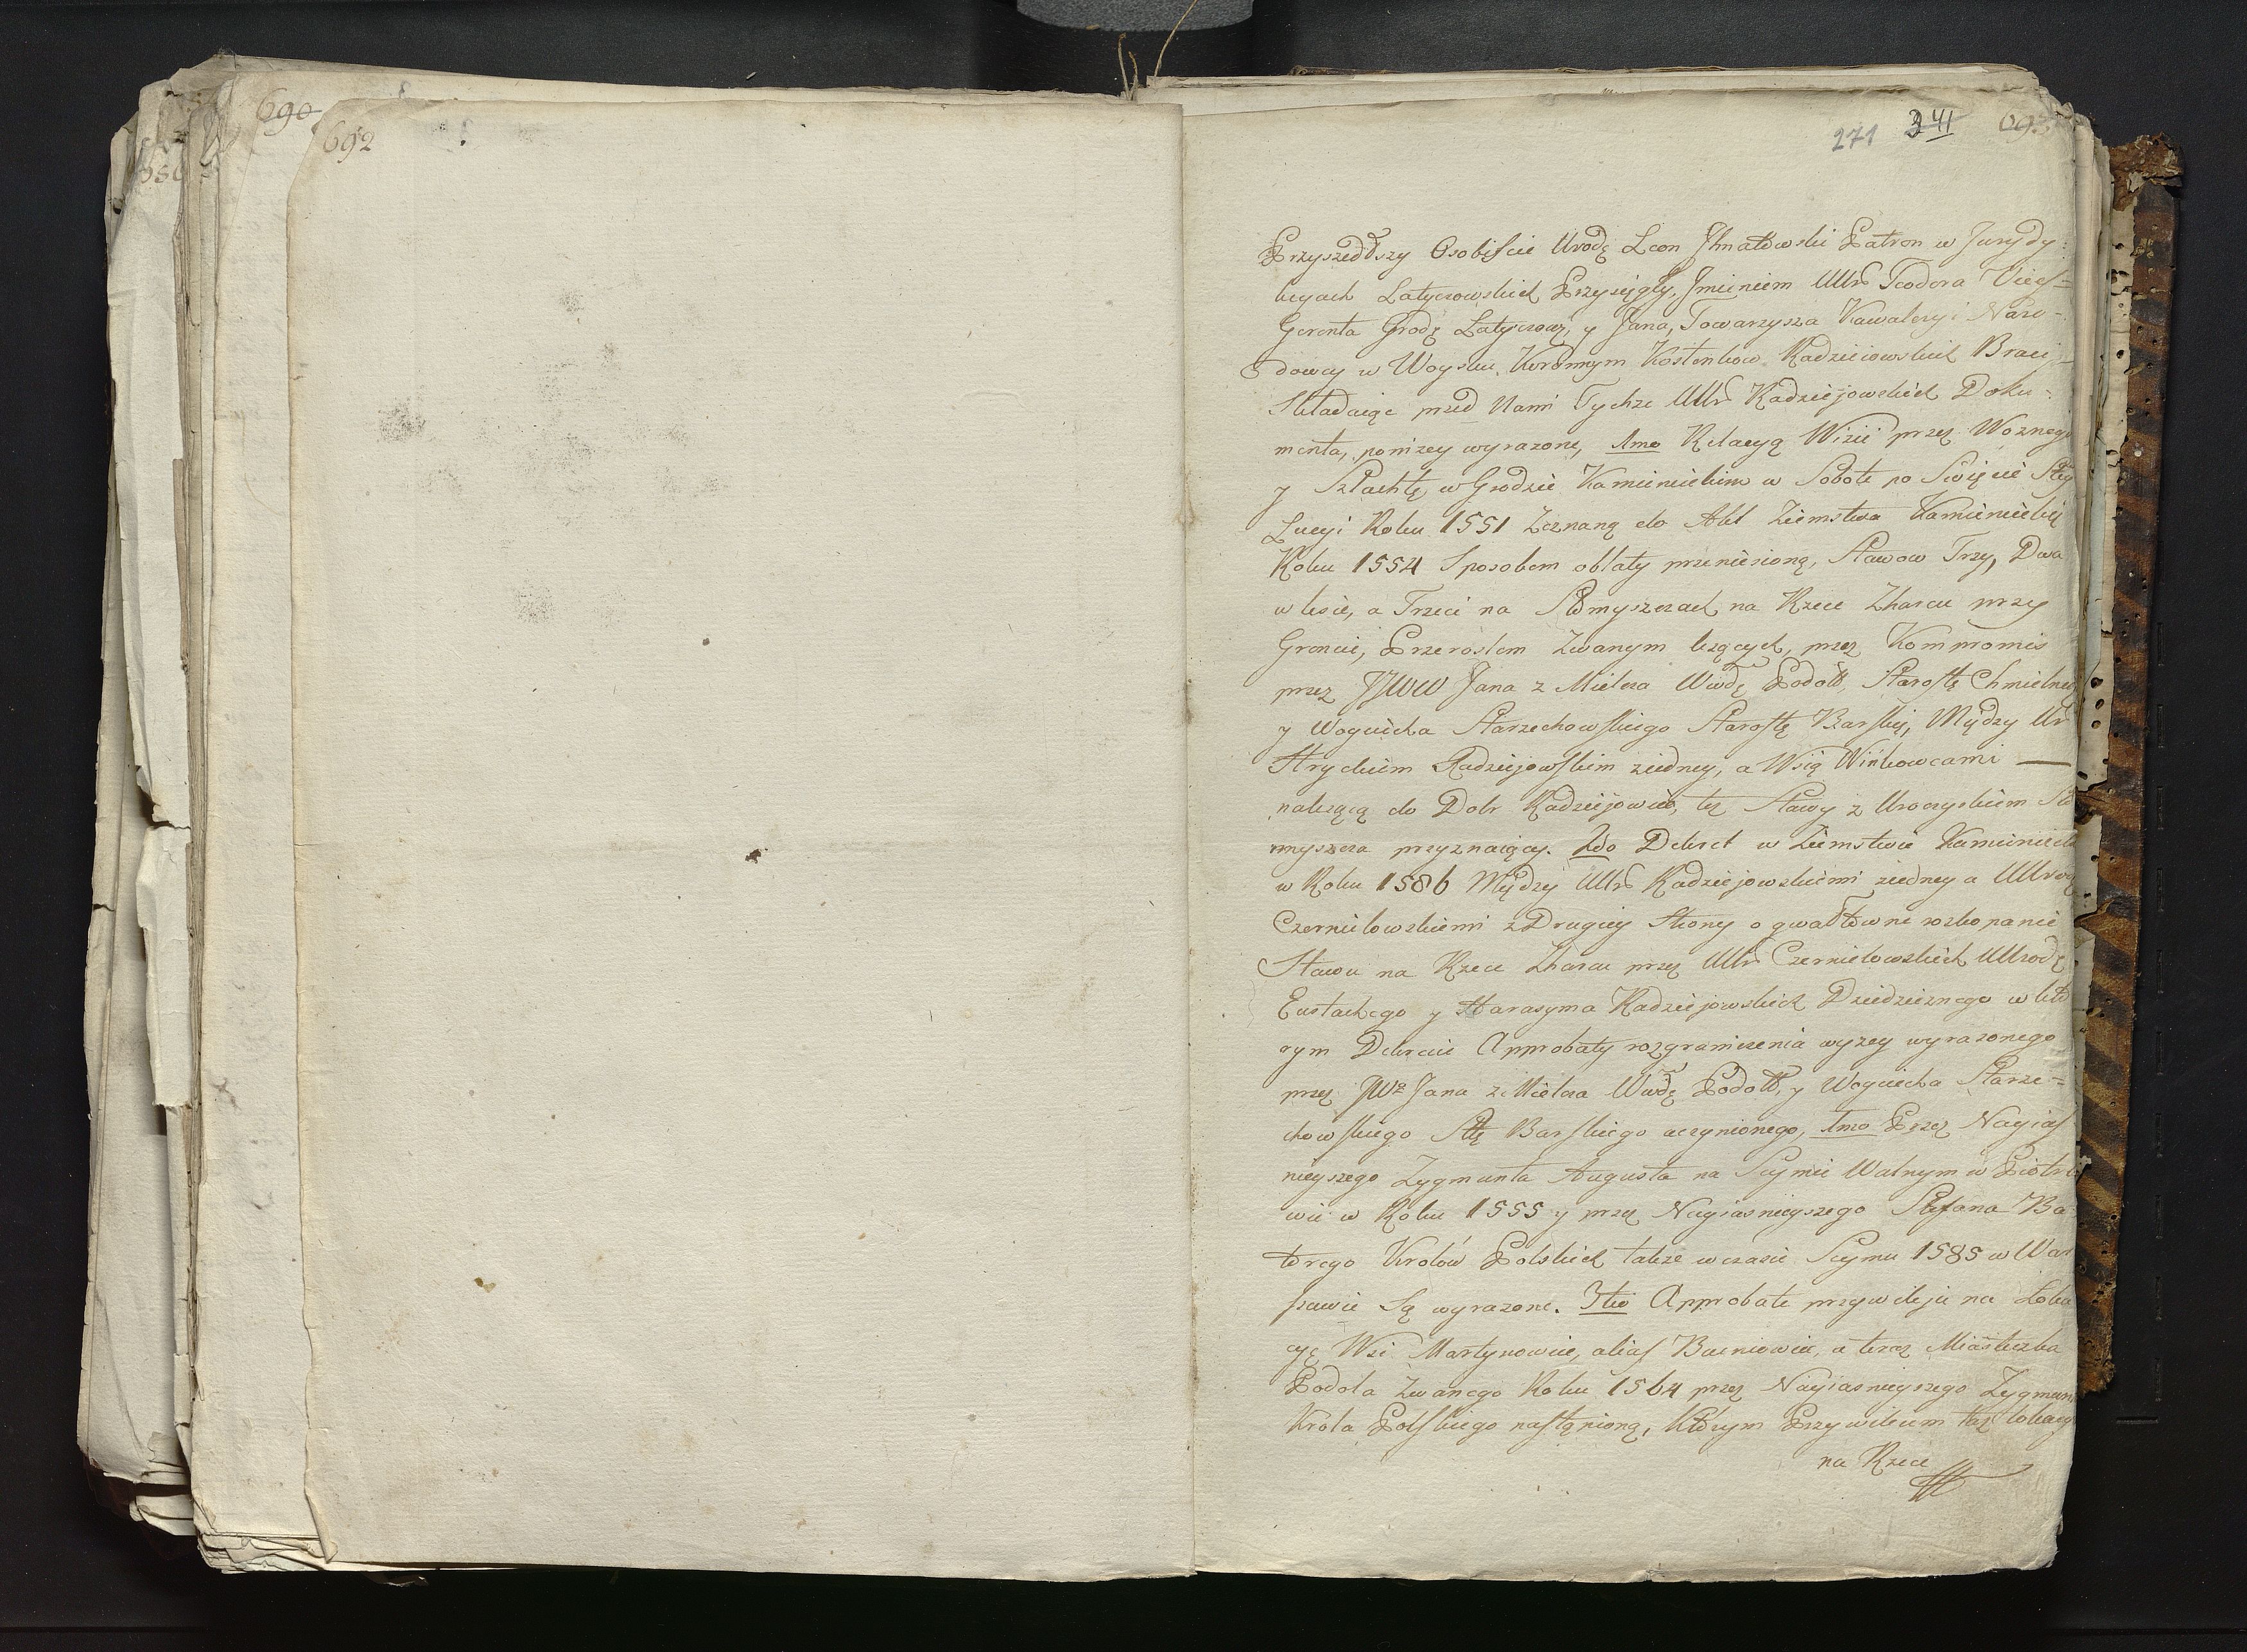 690
692
271 341 693
Przyszedłszy Osobiście Urodz Leon Ihnatowski Patron w Jurydy:
kcyach Latyczowskich Przysięgły, Jmieniem UUr Teodora Vices=
Gerenta Grodz Latyczow, y Jana, Towarzysza Kawaleryi Naro-
dowey w Woysku Koronnym Kostenkow Radzieiowskich Braci,
Składaiąc przed Nami Tychże UUr Radziejowskich Doku-
menta, poniżey wyrażone, 1mo Relacyą Wizii przez Woznego
y Szlachtę w Grodzie Kamienieckim w Sobotę po Swięcie Stey
Lucyi Roku 1551 Zeznaną do Akt Ziemstwa Kamienieckię
Roku 1554 Sposobem oblaty przeniesioną, Stawow Trzy, Dwa
w lesie, a Trzeci na Słomyszczach na Rzece Zharcu przy
Groncie, Przerostem Zwanym leżących, przez Kompromis
przez JJWW Jana z Mielca Wwdę Podoll, Starostę Chmielnic
y Woyciecha Starzechowskiego Starostę Barskię, Między Ur
Hryckiem Radziejowskim ziedney, a Wsią Wińkowcami —
należącą do Dobr Radziejowiec, też Stawy z Uroczyskiem Sło
myszcza przyznaiący. 2do Dekret w Ziemstwie Kamienieck
w Roku 1586 Między UUr Radziejowskiemi ziedney a UUrodz
Czerniłowskiemi z Drugiey Strony o gwałtowne rozkopanie
Stawu na Rzece Zharcu przez UUr Czerniłowskich UUrodz
Eustachego y Harasyma Radziejowskich Dziedzicznego w któ
rym Dekrecie Approbaty rozgraniczenia wyżey wyrażonego
przez JWo Jana z Mielca Wwdę Podoll, y Woyciecha Starze=
chowskiego Sttę Barskiego uczynionego, 1mo Przez Nayias
nieyszego Zygmunta Augusta na Seymie Walnym w Piotrko
wie w Roku 1555 y przez Nayiasnieyszego Stefana Ba
torego Krolów Polskich także w czasie Seymu 1585 w War
szawie Są wyrażone. 3tio Approbatę przywileju na Loka
cyę Wsi Martynowiec, alias Buniowiec, a teraz Miasteczka
Podola Zwanego Roku 1564 przez Nayiasnieyszego Zygmun
Króla Polskiego nastąpioną, Którym Przywileiem też lokacy
na Rzece